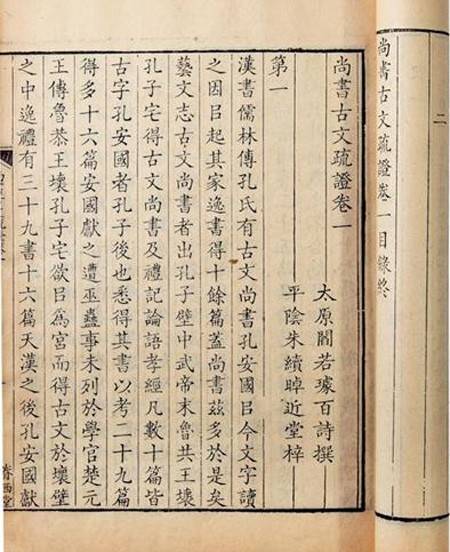 二
尚書古文疏證卷一目錄終
尚書古文疏證卷一
太原閻若璩百詩撰
平陰朱續晫近堂梓
第一
漢書儒林傳孔氏有古文尚書孔安國㠯今文字讀
之因㠯起其家逸書得十餘篇葢尚書茲多於是矣
藝文志古文尚書者出孔子壁中武帝末魯共王壞
孔子宅得古文尚書及禮記論語孝經凡數十篇皆
古字孔安國者孔子後也悉得其書以考二十九篇
得多十六篇安國獻之遭巫蠱事未列於學官楚元
王傳魯恭王壞孔子宅欲㠯爲宮而得古文於壞壁
之中逸禮有三十九書十六篇天漢之後孔安國獻
眷西堂